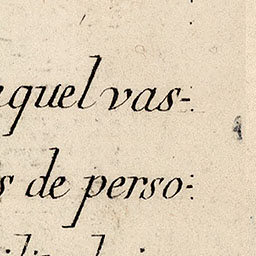 aquel vas-
s de perso-